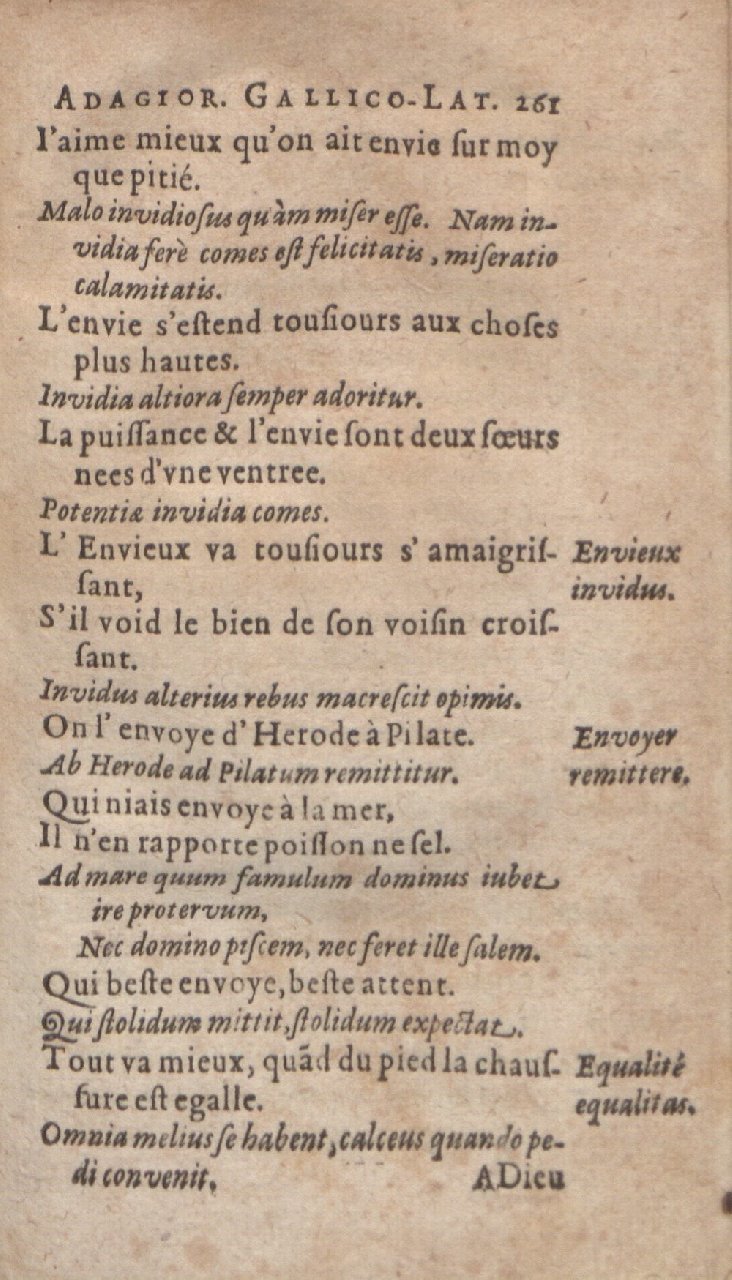 ADAGIOR. GALLICO-LAT. 261
I'aime mieux qu'on ait envie ſur moy
que pitié.
Malo invidioſus quàm miſer eſſe. Nam in-
vidia ferè comes eſt felicitatis, miſeratio
calamitatis.
L'envie s'eſtend touſiours aux choſes
plus hautes.
Invidia altiora ſemper adoritur.
La puiſſance & l'envie ſont deux ſœurs
nees d'vne ventree.
Potentiæ invidia comes.
L' Envieux va touſiours s' amaigriſ- Envieux
ſant, invidus.
S'il void le bien de ſon voiſin croiſ-
ſant.
Invidus alterius rebus macreſcit opimis.
On l' envoye d' Herode à Pilate. Envoyer
Ab Herode ad Pilatum remittitur. remittere.
Qui niais envoye à la mer,
Il n'en rapporte poiſſon ne ſel.
Ad mare quum famulum dominus iubet
ire protervum,
Nec domino piſcem, nec feret ille ſalem.
Qui beſte envoye, beſte attent.
Qui ſtolidum mittit, ſtolidum expectat.
Tout va mieux, quãd du pied la chauſ- Equalité
ſure eſt egalle. equalitas.
Omnia melius ſe habent, calceus quando pe-
di convenit. ADieu